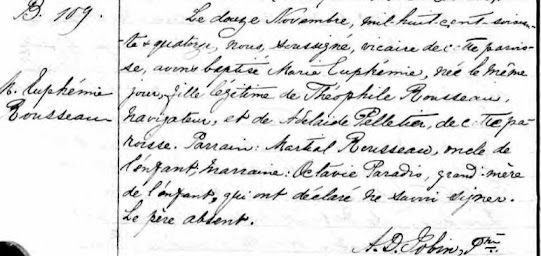 B. 109.
M. Euphémie
Rousseau
Le douze Novembre, mil huit cent soixan-
te & quatorze, nous, soussigné, vicaire de cette parois-
se, avons baptisé Marie Euphémie, née le même
jour, fille légitime de Théophile Rousseau,
navigateur, et de Adelaïde Pelletier, de cette pa-
roisse. Parrain: Martial Rousseau, oncle de
l'enfant, marraine: Octavie Paradis, grand-mère
de l'enfant, qui ont déclaré ne savoir signer.
Le père absent.
A. D. Jobin, Ptre